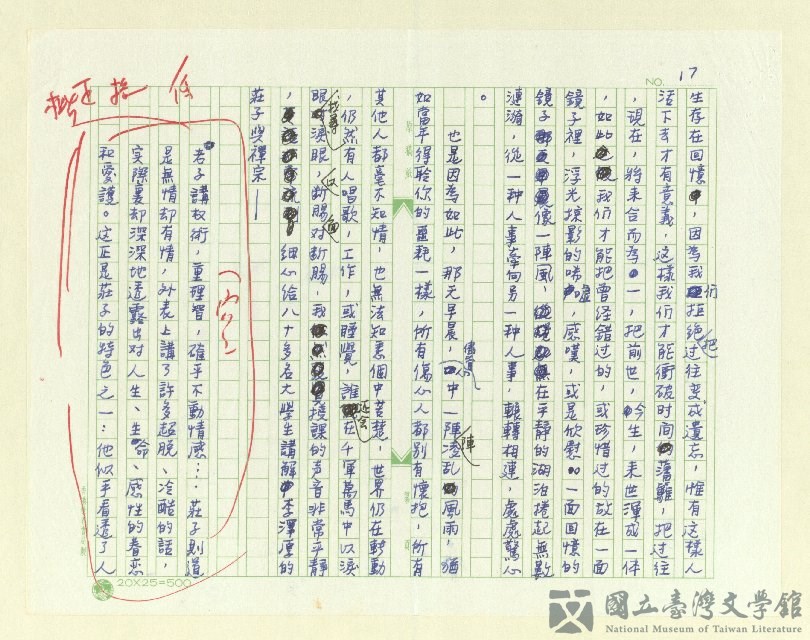 NO. 17
生存在回憶中，因為我們拒絕把過往變成遺忘，惟有這樣人
活下去才有意義，這樣我们才能衝破时间藩籬，把过往
，現在，將來合而為一，把前世，今生，来世渾成一体
，如此我们才能把曾经錯过的，或珍惜过的放在一面
鏡子裡，浮光掠影的唏噓，感嘆，或是欣慰。一面回憶的
鏡子像一陣風，在平静的湖泊捲起無數
漣漪，從一种人事牽向另一种人事，輾轉相連，處處驚心
。
也是因為如此，那天早晨，心中一陣凌乱風雨，猶
如當年得聆你的噩耗一樣，所有傷心人都别有懷抱，所有
其他人都毫不知情，也無法知悉個中苦楚，世界仍在轉動
，仍然有人唱歌，工作，或睡覺，誰还会在千軍萬馬中以淚
眼找尋淚眼，以断腸面对断腸，我授課的声音非常平静
，細心给八十多名大學生講解李澤厚的
莊子與禪宗——
老子講权術，重理智，確乎不動情感；莊子则道
是無情却有情，外表上講了許多超脱、冷酷的話，
实際裏却深深地透露出对人生、生命、感性的眷恋
和爱護。这正是莊子的特色之一：他似乎看透了人
20X25=500
國立臺灣文學館
National Museum of Taiwan Literature